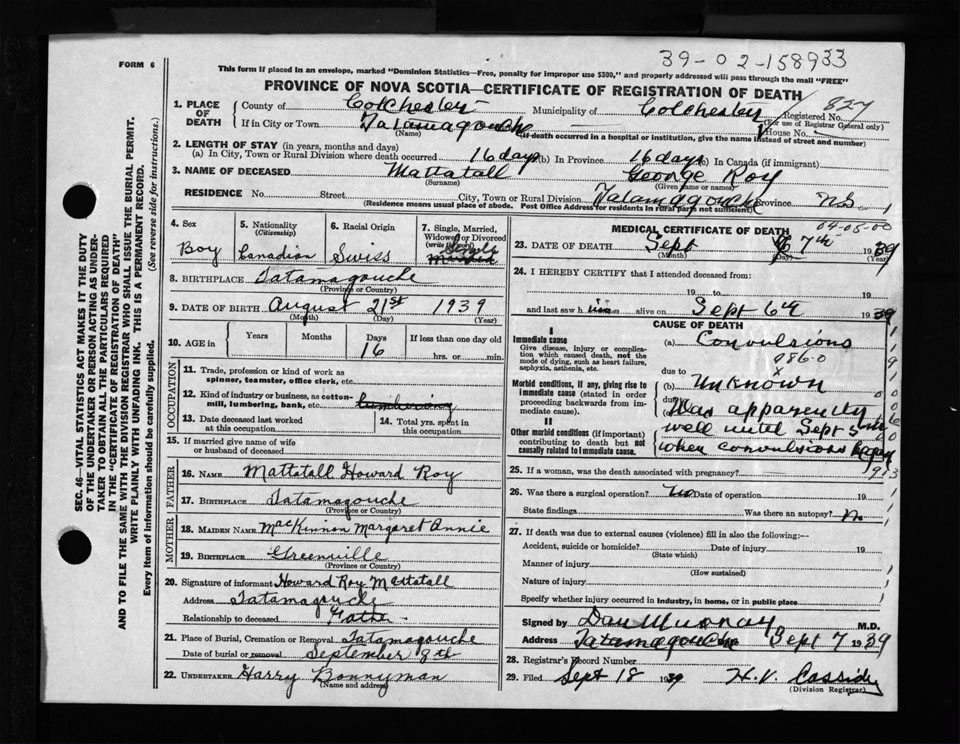 39-02-158933
FORM 6
This form if placed in an envelope, marked "Dominion Statistics—Free, penalty for improper use $300," and properly addressed will pass through the mail "FREE"
PROVINCE OF NOVA SCOTIA—CERTIFICATE OF REGISTRATION OF DEATH
827
1. PLACE OF DEATH
County of Colchester Municipality of Colchester Registered No.
(For use of Registrar General only)
If in City or Town Tatamagouche House No.
(Name) (If death occurred in a hospital or institution, give the name instead of street and number)
2. LENGTH OF STAY (in years, months and days)
(a) In City, Town or Rural Division where death occurred 16 days (b) In Province 16 days (c) In Canada (if immigrant)
3. NAME OF DECEASED Mattatall George Roy
(Surname) (Given name or names)
RESIDENCE No. Street City, Town or Rural Division Tatamagouche Province N.S.
(Residence means usual place of abode. Post Office Address for residents in rural parts not sufficient)
4. Sex
Boy
5. Nationality
(Citizenship)
Canadian
6. Racial Origin
Swiss
7. Single, Married, Widowed or Divorced
(write the word)
Single
8. BIRTHPLACE Tatamagouche
(Province or Country)
9. DATE OF BIRTH August 21st 1939
(Month) (Day) (Year)
10. AGE in Years Months Days If less than one day old
16 hrs. or min.
OCCUPATION
11. Trade, profession or kind of work as spinner, teamster, office clerk, etc.
12. Kind of industry or business, as cotton-mill, lumbering, bank, etc.
13. Date deceased last worked at this occupation
14. Total yrs. spent in this occupation
15. If married give name of wife or husband of deceased
FATHER
16. NAME Mattatall Howard Roy
17. BIRTHPLACE Tatamagouche
(Province or Country)
MOTHER
18. MAIDEN NAME MacKinnon Margaret Annie
19. BIRTHPLACE Greenville
(Province or Country)
20. Signature of informant Howard Roy Mattatall
Address Tatamagouche
Relationship to deceased Father
21. Place of Burial, Cremation or Removal Tatamagouche
Date of burial or removal September 8th
22. UNDERTAKER Harry Bonnyman
(Name and address)
04-05-00
MEDICAL CERTIFICATE OF DEATH
23. DATE OF DEATH Sept 7th 1939
(Month) (Day) (Year)
24. I HEREBY CERTIFY that I attended deceased from:
19 to 19
and last saw h im alive on Sept 6th 1939
CAUSE OF DEATH
I
Immediate cause
Give disease, injury or complication which caused death, not the mode of dying, such as heart failure, asphyxia, asthenia, etc.
(a) Convulsions
086.0
due to
Morbid conditions, if any, giving rise to immediate cause (stated in order proceeding backwards from immediate cause).
(b) Unknown
due to
Was apparently
II
Other morbid conditions (if important) contributing to death but not causally related to immediate cause.
well until Sept 5
when convulsions
25. If a woman, was the death associated with pregnancy?
26. Was there a surgical operation? No Date of operation 19
State findings Was there an autopsy? No
27. If death was due to external causes (violence) fill in also the following:—
Accident, suicide or homicide? Date of injury 19
(State which)
Manner of injury
(How sustained)
Nature of injury
Specify whether injury occurred in industry, in home, or in public place
Signed by Dan Murray M.D.
Address Tatamagouche Date Sept 7 1939
28. Registrar's Record Number
29. Filed Sept 18 1939 H.V. Cassidy
(Division Registrar)
SEC. 46—VITAL STATISTICS ACT MAKES IT THE DUTY
OF THE UNDERTAKER OR PERSON ACTING AS UNDER-
TAKER TO OBTAIN ALL THE PARTICULARS REQUIRED
IN THE "CERTIFICATE OF REGISTRATION OF DEATH"
AND TO FILE THE SAME WITH THE DIVISION REGISTRAR WHO SHALL ISSUE THE BURIAL PERMIT.
WRITE PLAINLY WITH UNFADING INK. THIS IS A PERMANENT RECORD.
Every item of information should be carefully supplied. (See reverse side for instructions.)